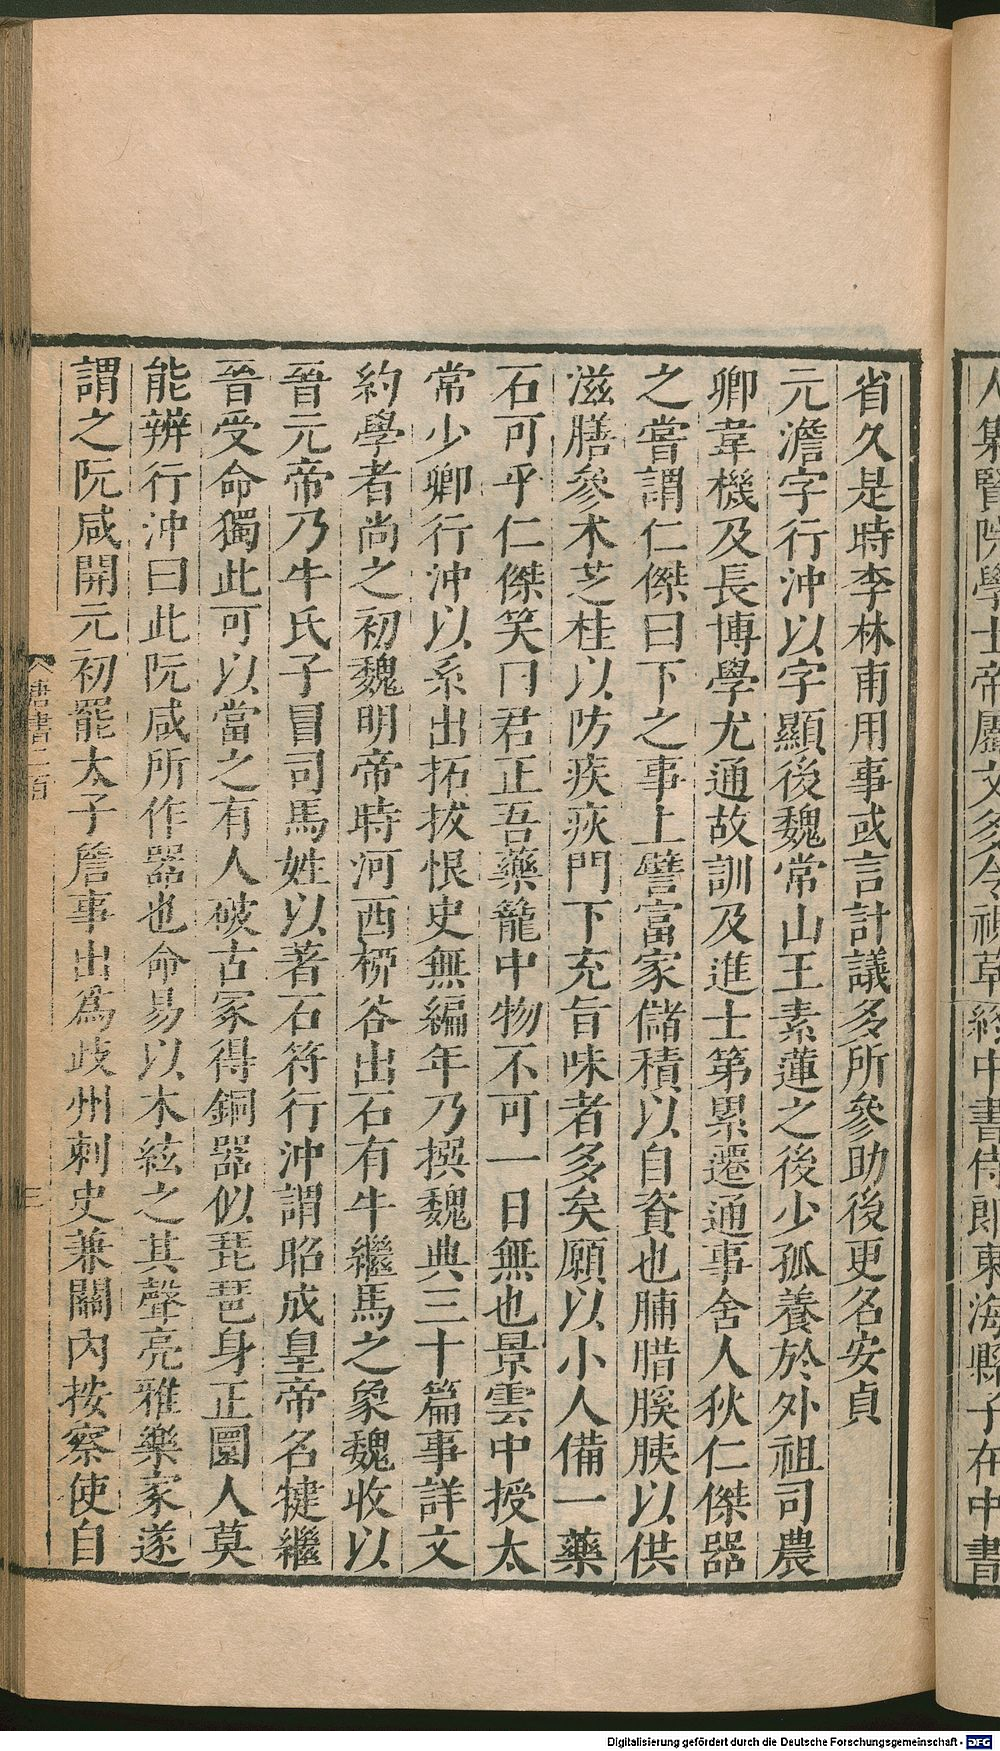 省久是時李林甫用事或言計議多所參助後更名安貞
元澹字行沖以字顯後魏常山王素蓮之後少孤養於外祖司農
卿韋機及長博學尤通故訓及進士第累遷通事舍人狄仁傑器
之嘗謂仁傑曰下之事上譬富家儲積以自資也脯腊膎胰以供
滋膳參朮芝桂以防疾疢門下充旨味者多矣願以小人備一藥
石可乎仁傑笑曰君正吾藥籠中物不可一日無也景雲中授太
常少卿行沖以系出拓拔恨史無編年乃撰魏典三十篇事詳文
約學者尚之初魏明帝時河西柳谷出石有牛繼馬之象魏收以
晉元帝乃牛氏子冒司馬姓以著石符行沖謂昭成皇帝名犍繼
晉受命獨此可以當之有人破古冢得銅器似琵琶身正圓人莫
能辨行沖曰此阮咸所作器也命易以木絃之其聲亮雅樂家遂
謂之阮咸開元初罷太子詹事出爲歧州刺史兼關內按察使自
唐書二百
三
人集賢院學士帝屬文多令視草終中書侍郎東海縣子在中書
Digitalisierung gefördert durch die Deutsche Forschungsgemeinschaft - DFG